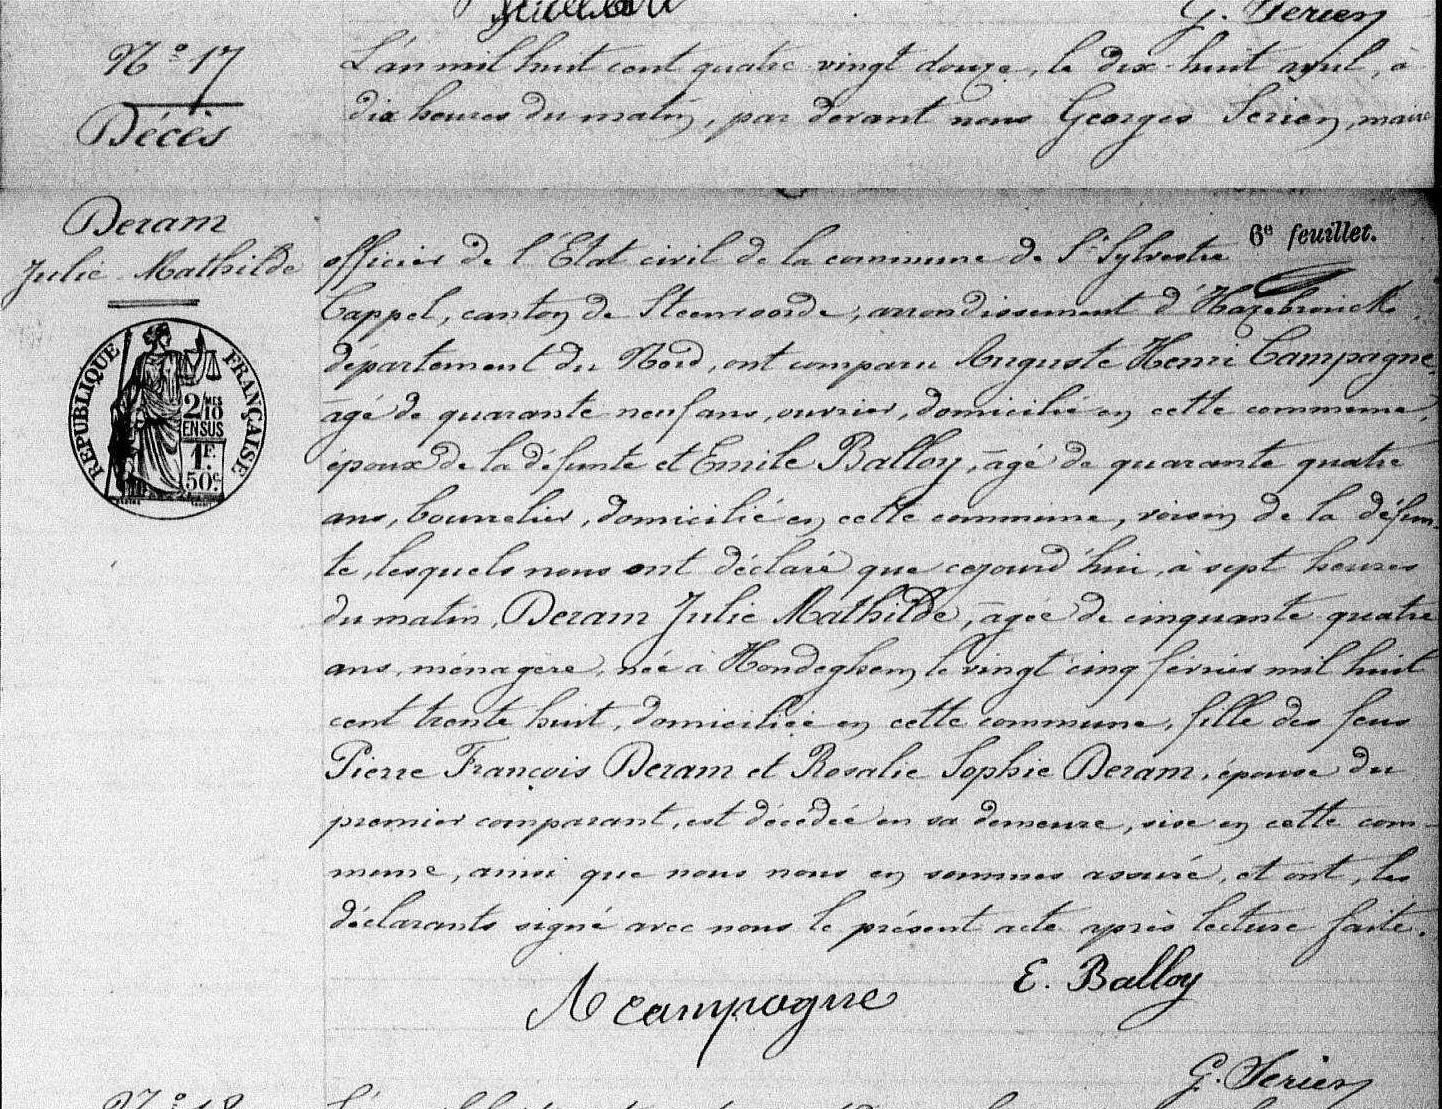 G. Serien
N° 17
Décès
L'an mil huit cent quatre vingt douze, le dix-huit avril, à
dix heures du matin, par devant nous Georges Serien, maire
Deram
Julie Mathilde
6e feuillet.
officier de l'État civil de la commune de St Sylvestre
Cappel, canton de Steenvoorde, arrondissement d'Hazebrouck,
département du Nord, ont comparu Auguste Henri Campagne,
âgé de quarante neuf ans, ouvrier, domicilié en cette commune,
époux de la défunte et Emile Balloy, âgé de quarante quatre
ans, bourrelier, domicilié en cette commune, voisin de la défun-
te, lesquels nous ont déclaré que cejourd'hui, à sept heures
du matin, Deram Julie Mathilde, âgée de cinquante quatre
ans, ménagère, née à Hondeghem le vingt cinq février mil huit
cent trente huit, domiciliée en cette commune, fille des feus
Pierre François Deram et Rosalie Sophie Deram, épouse du
premier comparant, est décédée en sa demeure, sise en cette com-
mune, ainsi que nous nous en sommes assuré, et ont, les
déclarants signé avec nous le présent acte après lecture faite.
RÉPUBLIQUE FRANÇAISE
2/10 MES
EN SUS
1F.
50c.
A Campagne
E. Balloy
G. Serien
N° 18